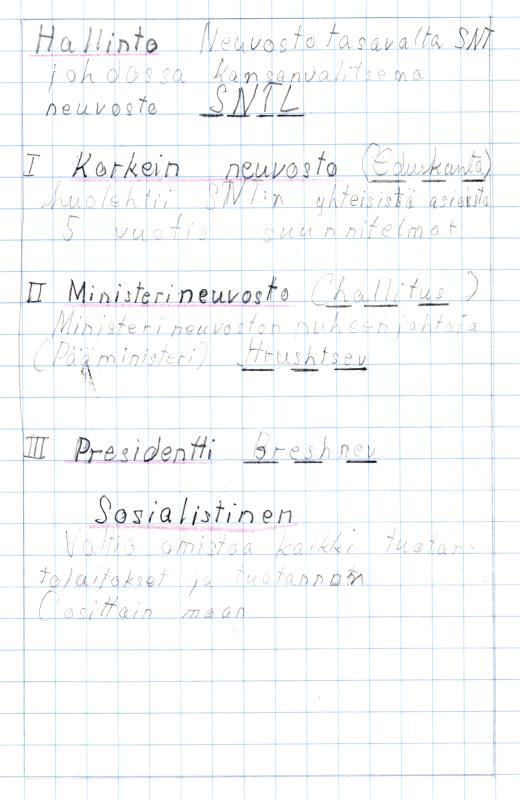 Hallinto Neuvostotasavalta SNT
johdossa kansanvalitsema
neuvosto SNTL
I Korkein neuvosto (Eduskunta)
huolehtii SNT:n yhteisistä asioista
5 vuotis suunnitelmat
II Ministerineuvosto (hallitus)
Ministerineuvoston puheenjohtaja
(Pääministeri) Hrushtsev
III Presidentti Breshnev
Sosialistinen
Valtio omistaa kaikki tuotan-
tolaitokset ja tuotannon
(osittain maan